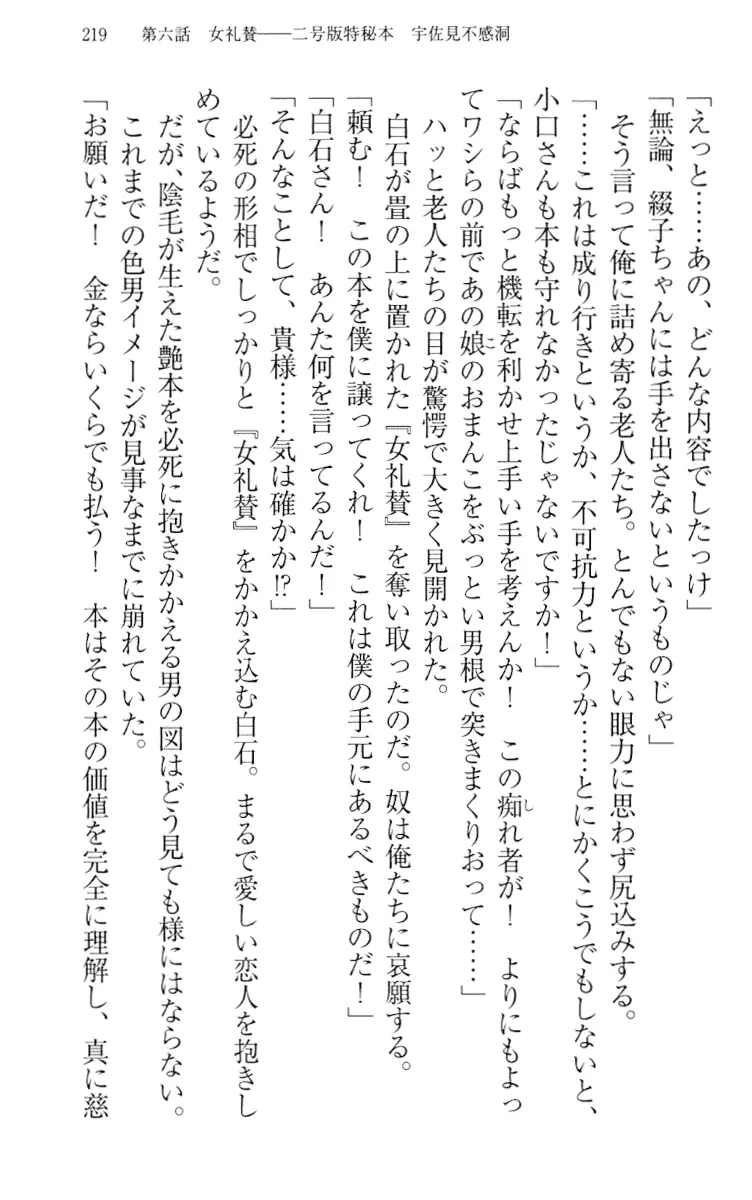 219　第六話　女礼賛――二号版特秘本　宇佐見不感洞
「えっと……あの、どんな内容でしたっけ」
「無論、綴子ちゃんには手を出さないというものじゃ」
　そう言って俺に詰め寄る老人たち。とんでもない眼力に思わず尻込みする。
「……これは成り行きというか、不可抗力というか……とにかくこうでもしないと、
小口さんも本も守れなかったじゃないですか！」
「ならばもっと機転を利かせ上手い手を考えんか！　この痴れ者が！　よりにもよっ
てワシらの前であの娘のおまんこをぶっとい男根で突きまくりおって……」
　ハッと老人たちの目が驚愕で大きく見開かれた。
　白石が畳の上に置かれた『女礼賛』を奪い取ったのだ。奴は俺たちに哀願する。
「頼む！　この本を僕に譲ってくれ！　これは僕の手元にあるべきものだ！」
「白石さん！　あんた何を言ってるんだ！」
「そんなことして、貴様……気は確かか!?」
　必死の形相でしっかりと『女礼賛』をかかえ込む白石。まるで愛しい恋人を抱きし
めているようだ。
　だが、陰毛が生えた艶本を必死に抱きかかえる男の図はどう見ても様にはならない。
　これまでの色男イメージが見事なまでに崩れていた。
「お願いだ！　金ならいくらでも払う！　本はその本の価値を完全に理解し、真に慈